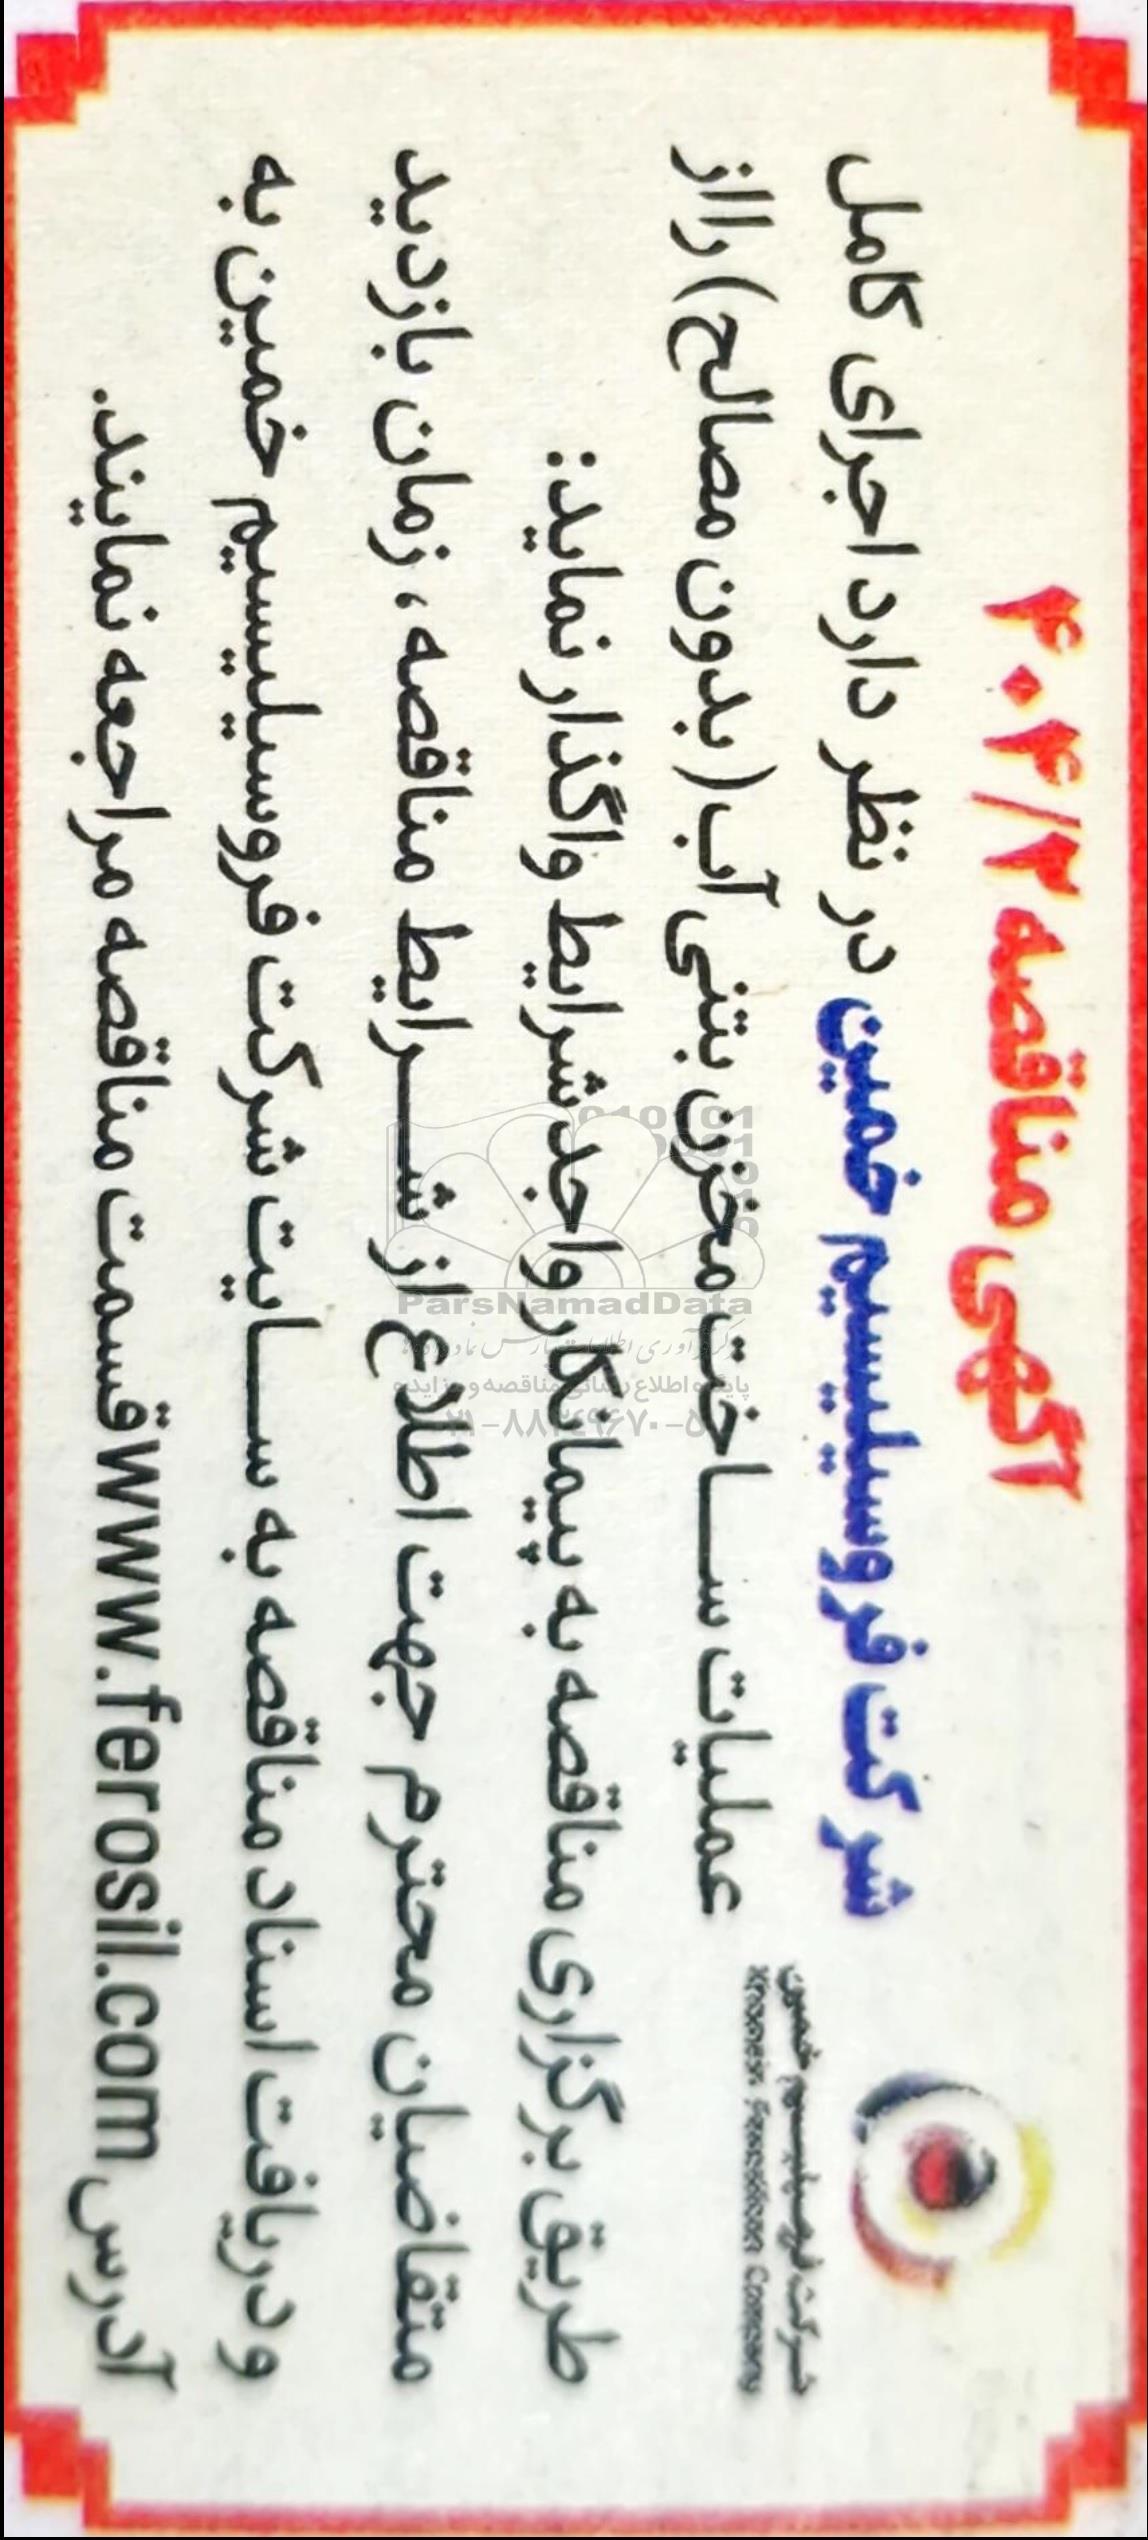 آگهی مناقصه ۴۰۴/۲
شرکت فروسیلیسیم خمین در نظر دارد اجرای کامل
عملیات ساخت مخزن بتنی آب (بدون مصالح) را از
طریق برگزاری مناقصه به پیمانکار واجد شرایط واگذار نماید:
متقاضیان محترم جهت اطلاع از شرایط مناقصه، زمان بازدید
و دریافت اسناد مناقصه به سایت شرکت فروسیلیسیم خمین به
آدرس www.ferosil.com قسمت مناقصه مراجعه نمایند.
شرکت فروسیلیسیم خمین
Khomein Ferosilicon Company
ParsNamadData
پایگاه اطلاع رسانی مناقصه و مزایده